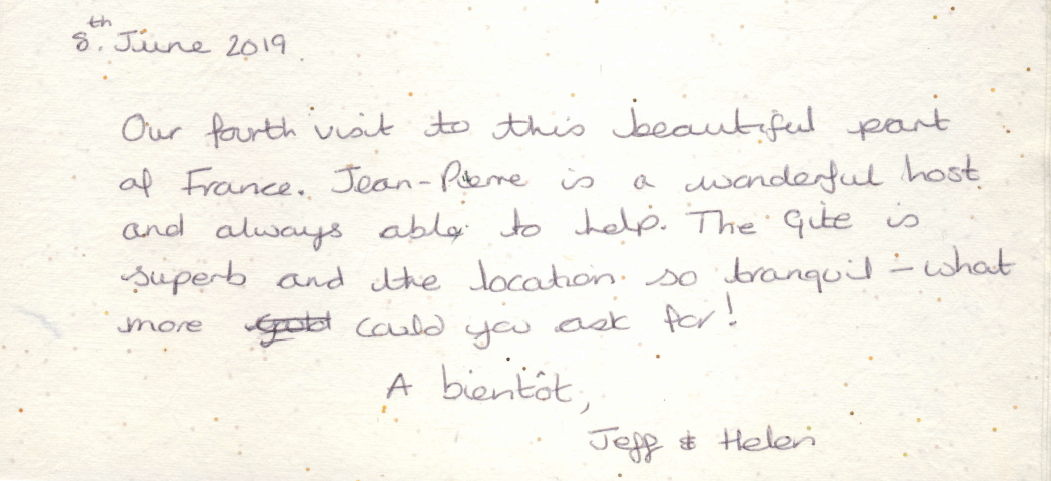 8th. June 2019
Our fourth visit to this beautiful part
of France. Jean-Pierre is a wonderful host
and always able to help. The Gite is
superb and the location so tranquil – what
more could you ask for!
A bientôt,
Jeff & Helen